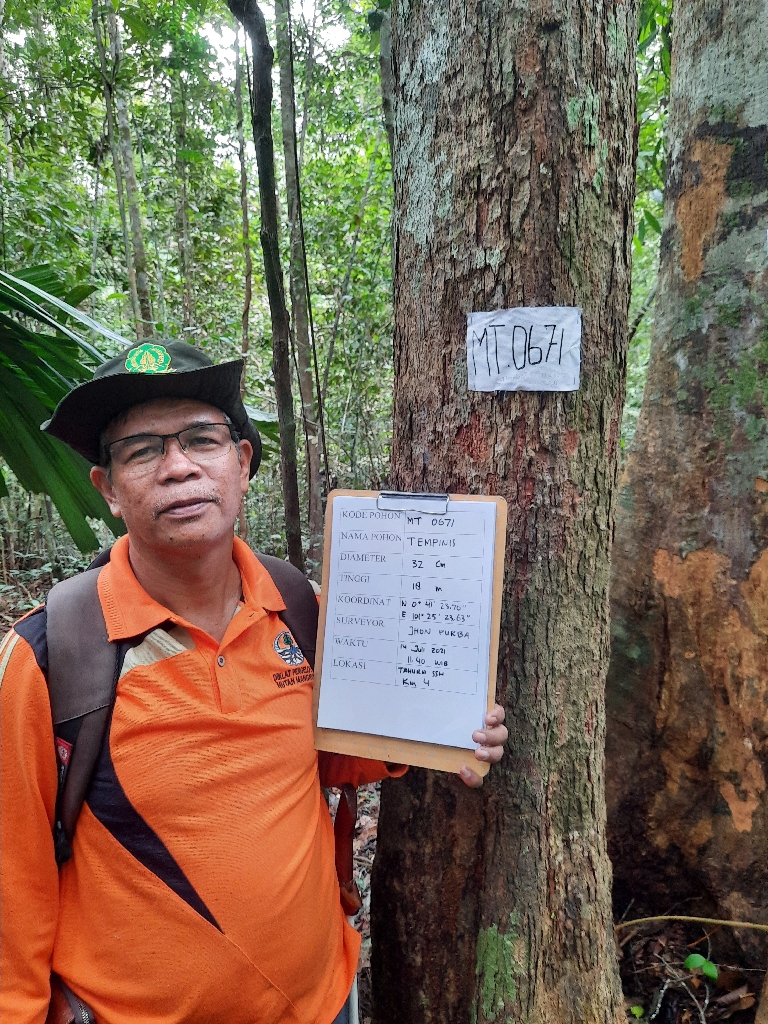 MT.0671
KODE POHON MT 0671
NAMA POHON TEMPINIS
DIAMETER 32 Cm
TINGGI 18 m
KOORDINAT N 0° 41' 23.70"
E 101° 25' 23.63"
SURVEYOR JHON PURBA
WAKTU 14 Juli 2021
11.40 WIB
LOKASI TAHURA SSH
Km 4
DIKLAT
HUTAN